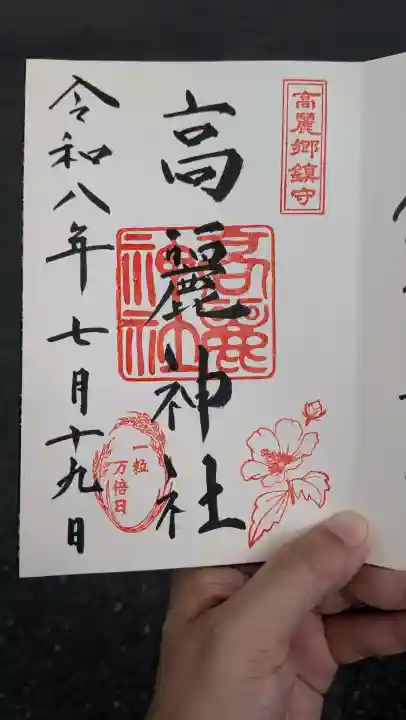 高麗郷鎮守
高麗神社
高麗
神社
令和八年七月十九日
一粒
万倍日